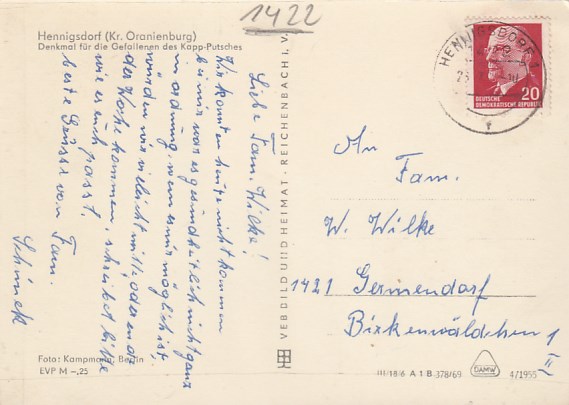 1422
Hennigsdorf (Kr. Oranienburg)
Denkmal für die Gefallenen des Kapp-Putsches
Liebe Fam. Wilke!
Wir konnten heute nicht kommen
bei mir war es gesundheitlich nicht ganz
in ordnung, wenn es mir möglich ist,
würden wir vieleicht mitte oder ende
der Woche kommen, schreibt bitte
wie es euch passt,
beste Grüsse von Fam.
Foto: Kampmann, Berlin
EVP M –,25
VEB BILD UND HEIMAT · REICHENBACH I. V.
HENNIGSDORF 1
20
DEUTSCHE
DEMOKRATISCHE REPUBLIK
An
Fam.
W. Wilke
1421 Germendorf
Birkenwäldchen 1
II
III/18/6 A 1 B 378/69
DAMW
4/1955